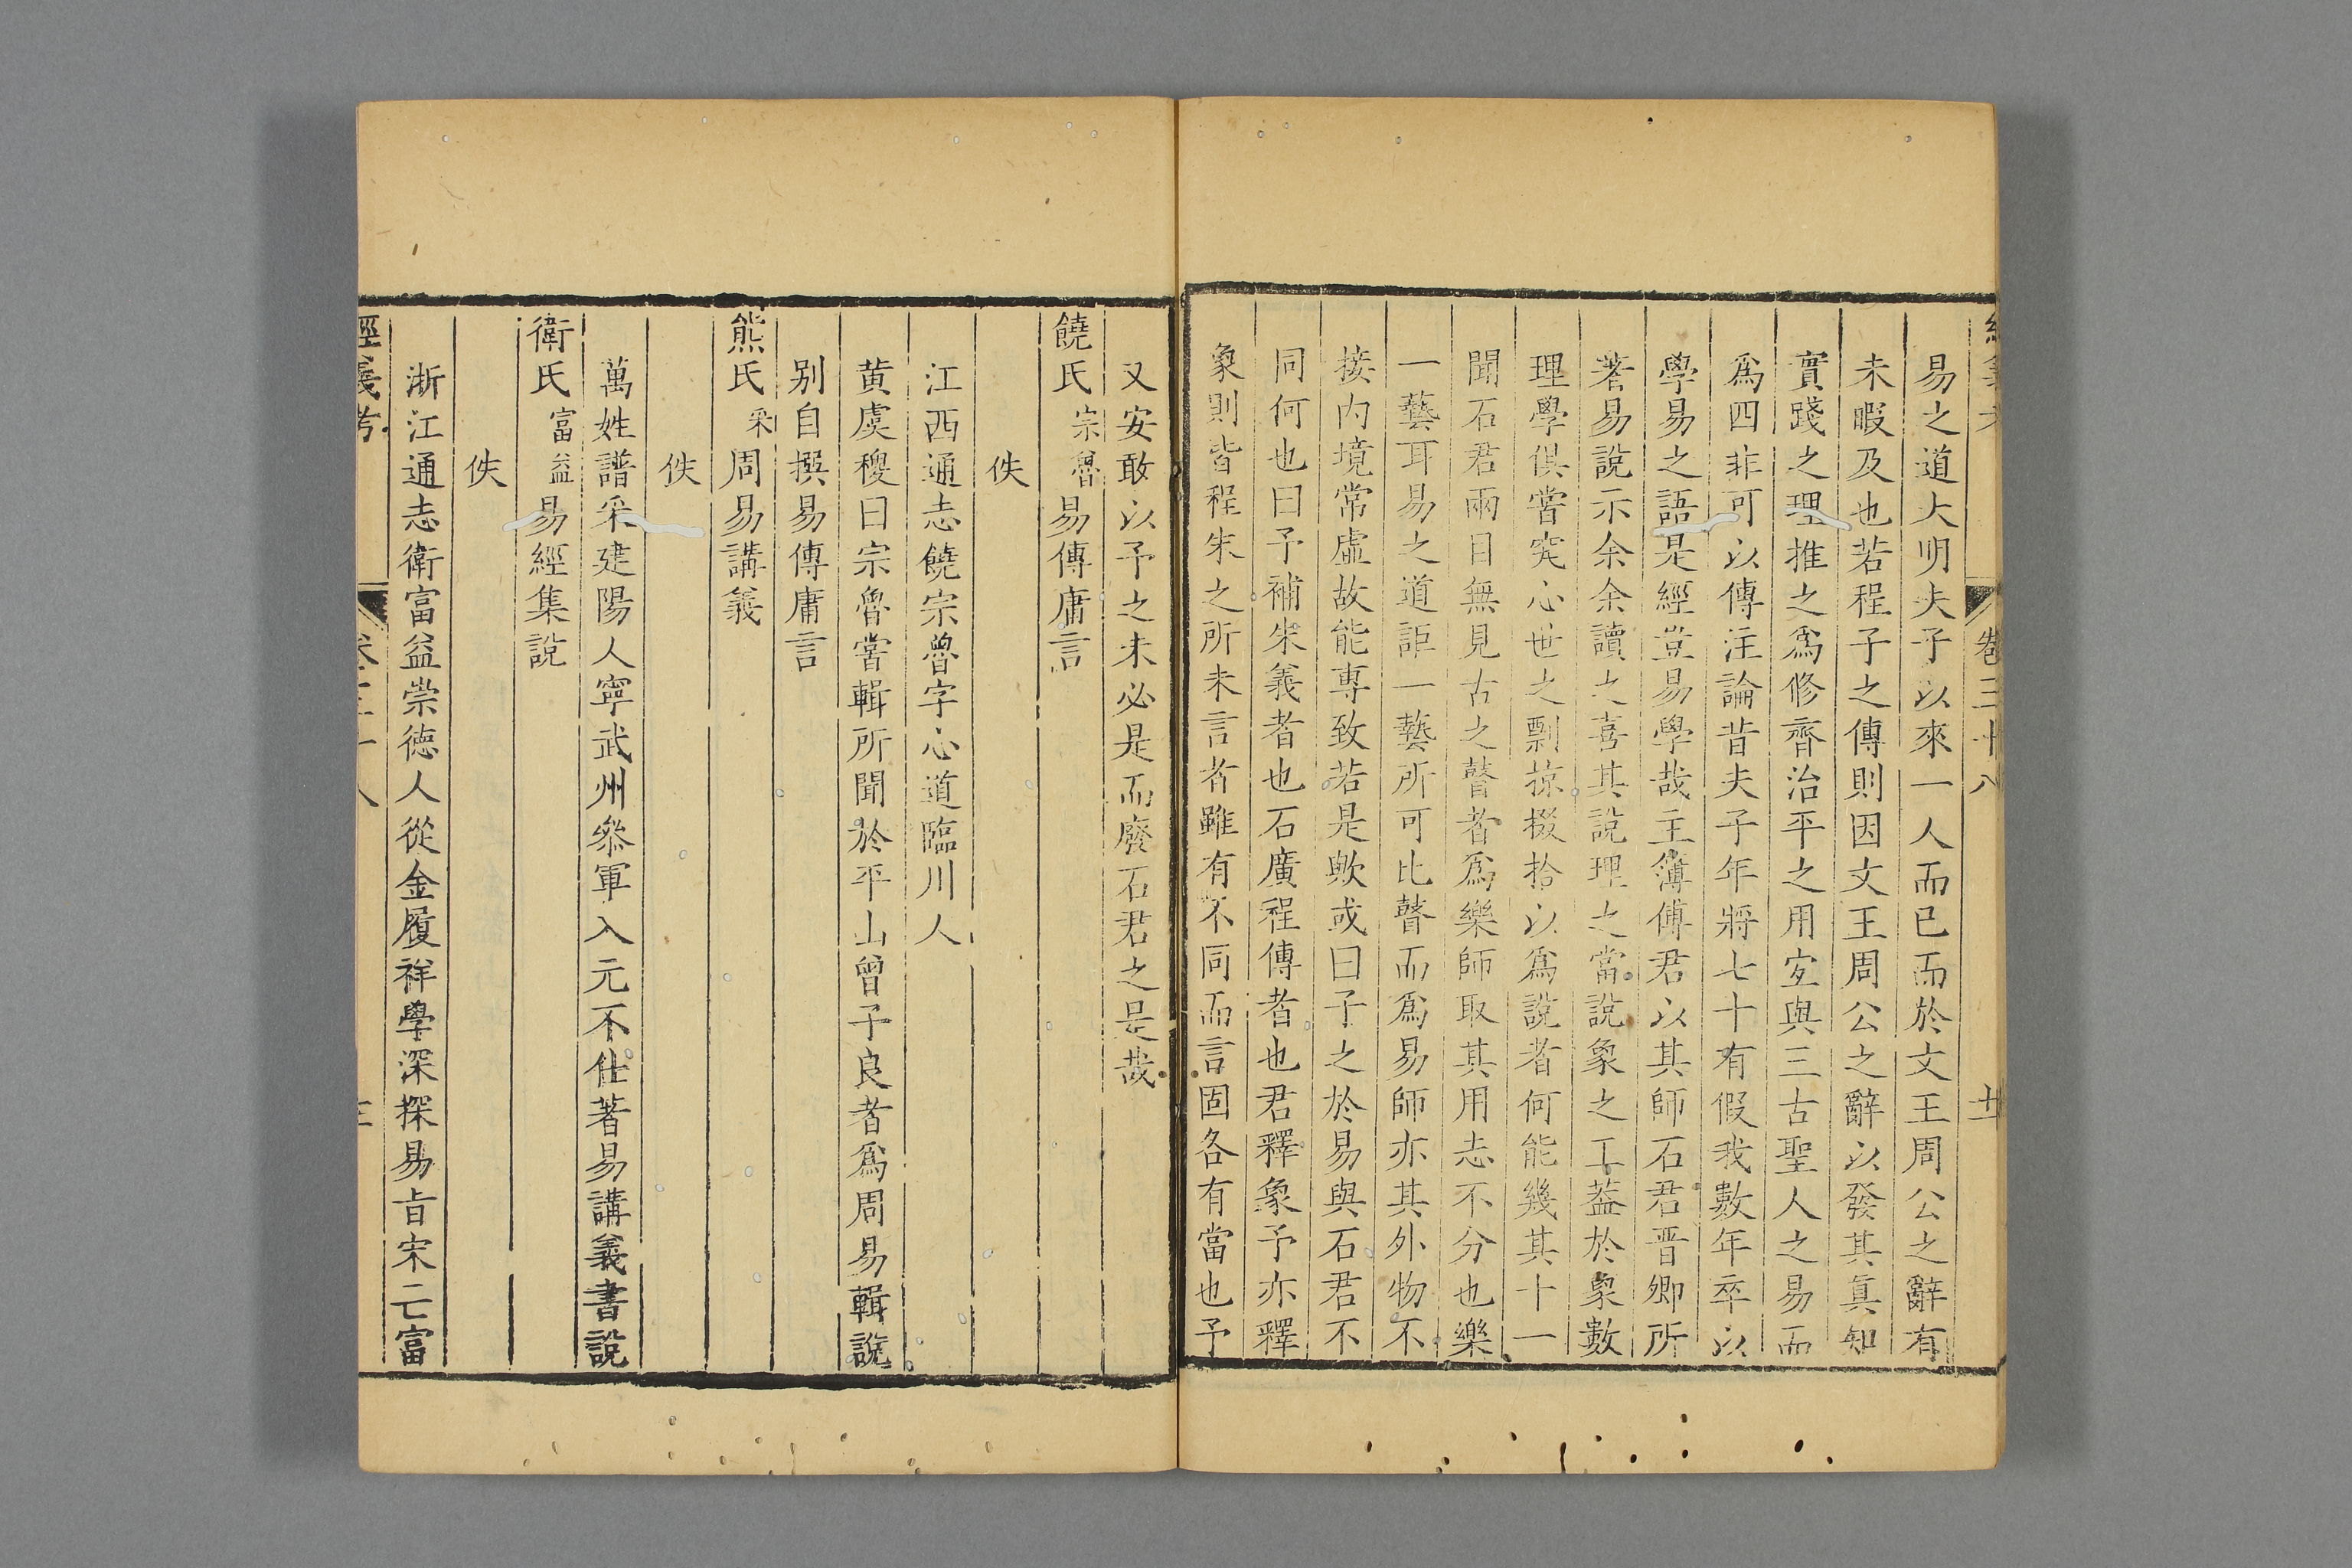 卷三十八
十一
易之道大明夫子以來一人而已而於文王周公之辭有
未暇及也若程子之傳則因文王周公之辭以發其眞知
實踐之理推之爲修齊治平之用宐與三古聖人之易而
爲四非可以傳注論昔夫子年將七十有假我數年卒以
學易之語是經豈易學哉主簿傅君以其師石君晋卿所
著易說示余余讀之喜其說理之當說象之工葢於象數
理學俱嘗究心世之剽掠掇拾以爲說者何能幾其十一
聞石君兩目無見古之瞽者爲樂師取其用志不分也樂
一藝耳易之道詎一藝所可比瞽而爲易師亦其外物不
接內境常虛故能專致若是歟或曰子之於易與石君不
同何也曰予補朱義者也石廣程傳者也君釋象予亦釋
象則皆程朱之所未言者雖有不同而言固各有當也予
又安敢以予之未必是而廢石君之是哉
饒氏宗魯易傳庸言
佚
江西通志饒宗魯字心道臨川人
黄虞稷曰宗魯嘗輯所聞於平山曾子良者爲周易輯說
别自撰易傳庸言
熊氏釆周易講義
佚
萬姓譜釆建陽人寜武州叅軍入元不仕著易講義書說
衛氏富益易經集說
佚
浙江通志衛富益崇德人從金履祥學深探易旨宋亡富
經義考